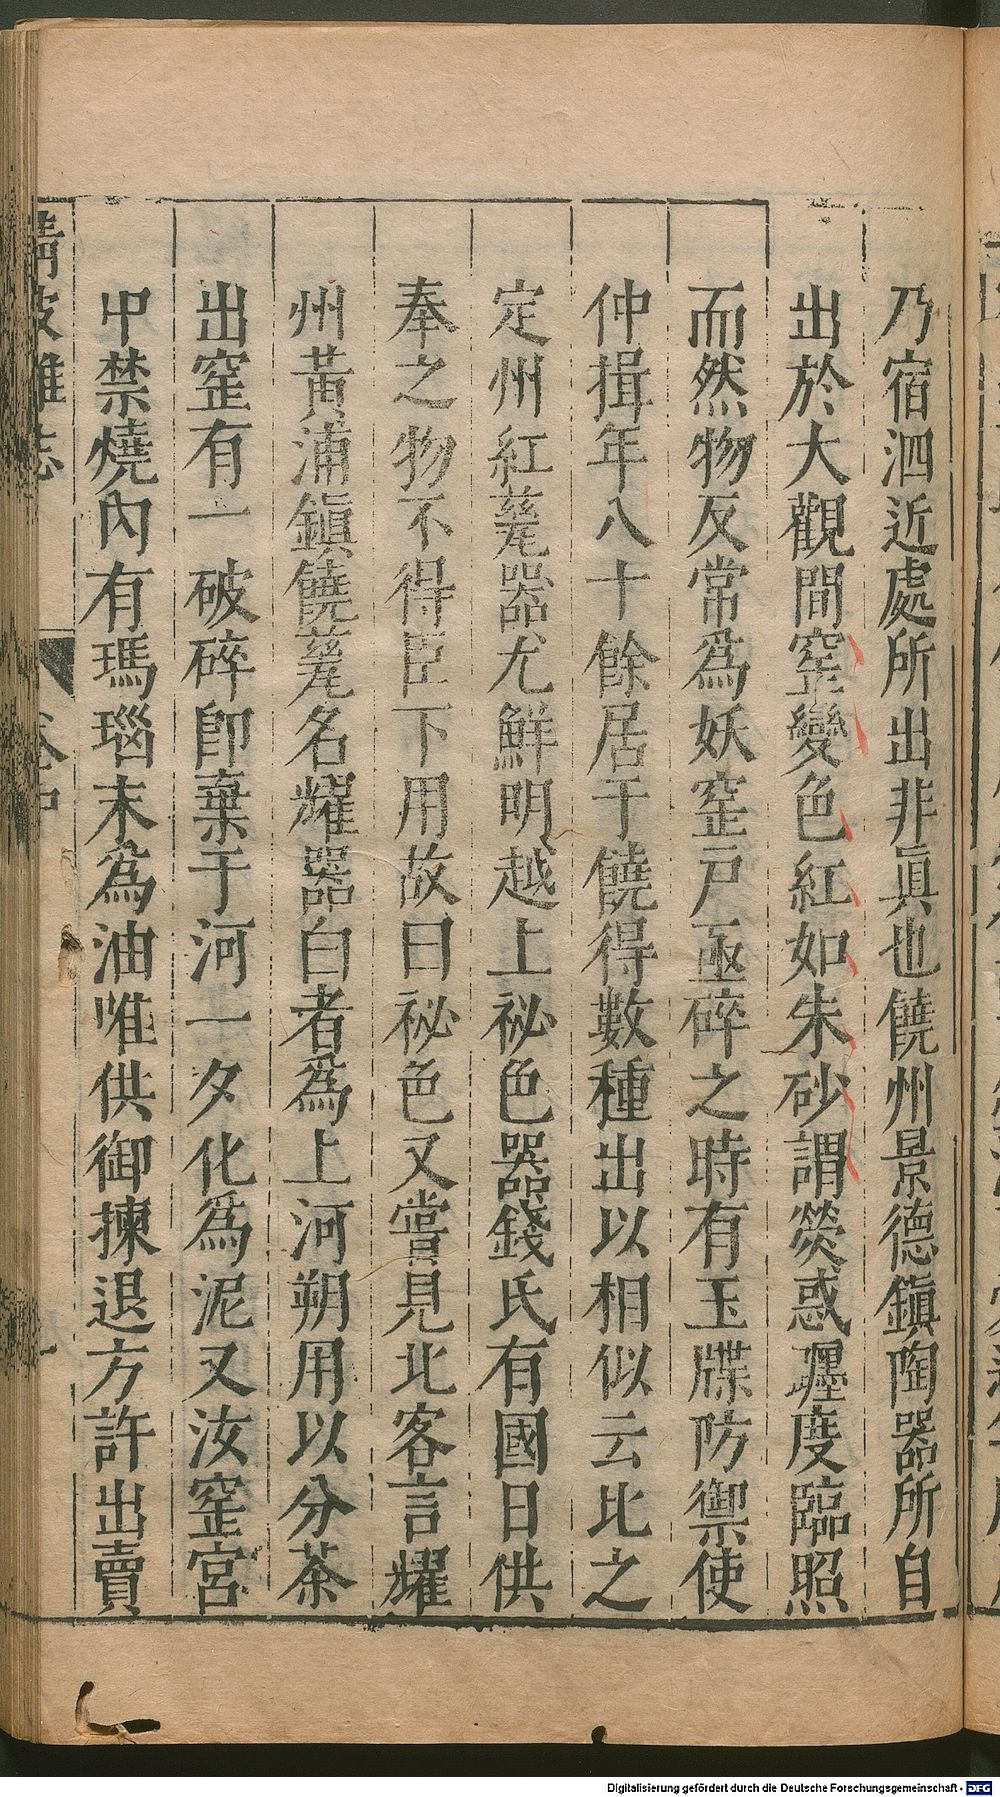 乃宿泗近處所出非眞也饒州景德鎭陶器所自
出於大觀間窑變色紅如朱砂謂熒惑躔度臨照
而然物反常爲妖窑戸亟碎之時有玉牒防禦使
仲揖年八十餘居于饒得數種出以相似云比之
定州紅甆器尤鮮明越上祕色器錢氏有國日供
奉之物不得臣下用故曰祕色又嘗見北客言耀
州黃浦鎭饒甆名耀器白者爲上河朔用以分茶
出窑有一破碎卽棄于河一夕化爲泥又汝窑宮
中禁燒內有瑪瑙末爲油唯供御揀退方許出賣
清波雜志 卷中
Digitalisierung gefördert durch die Deutsche Forschungsgemeinschaft - DFG